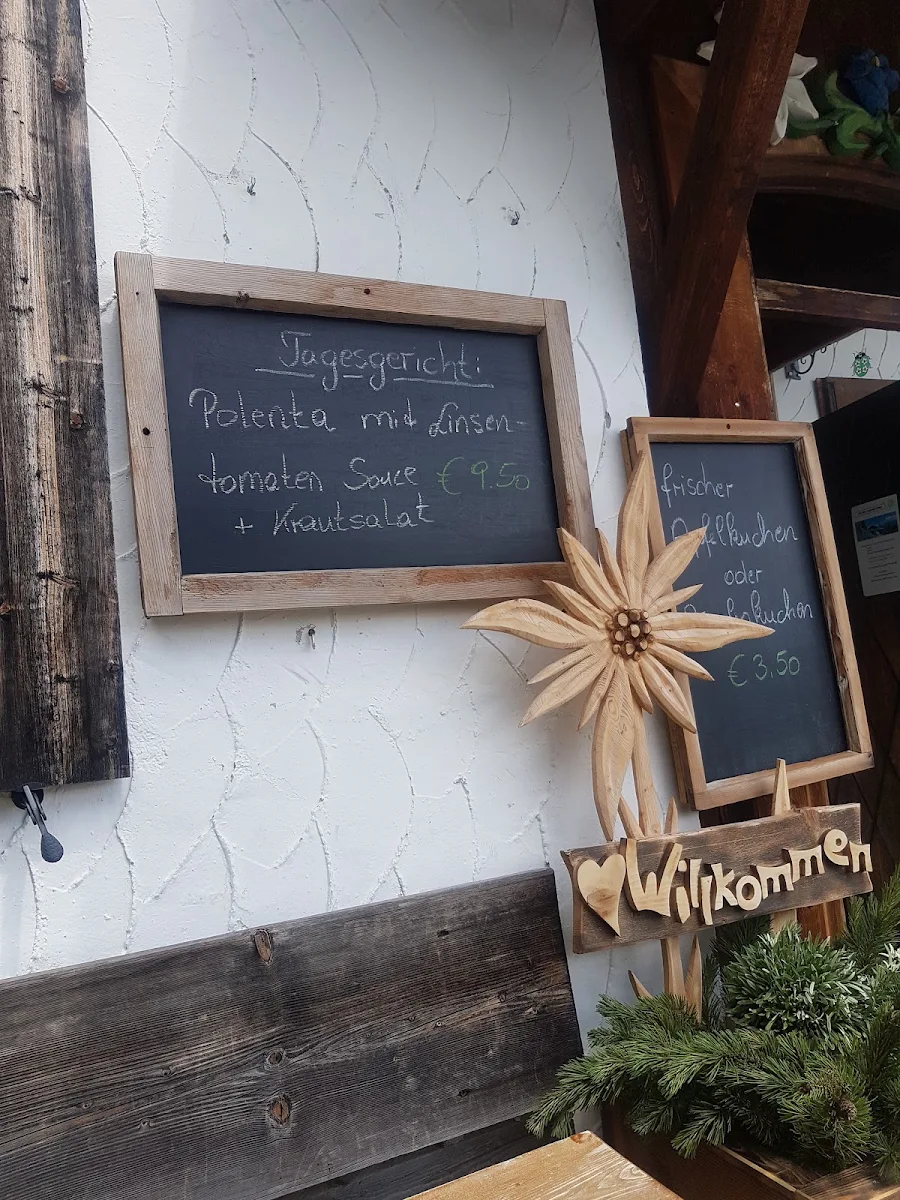 Tagesgericht:
Polenta mit Linsen-
tomaten Souce € 9.50
+ Krautsalat
frischer
Apfelkuchen
oder
€ 3,50
Willkommen